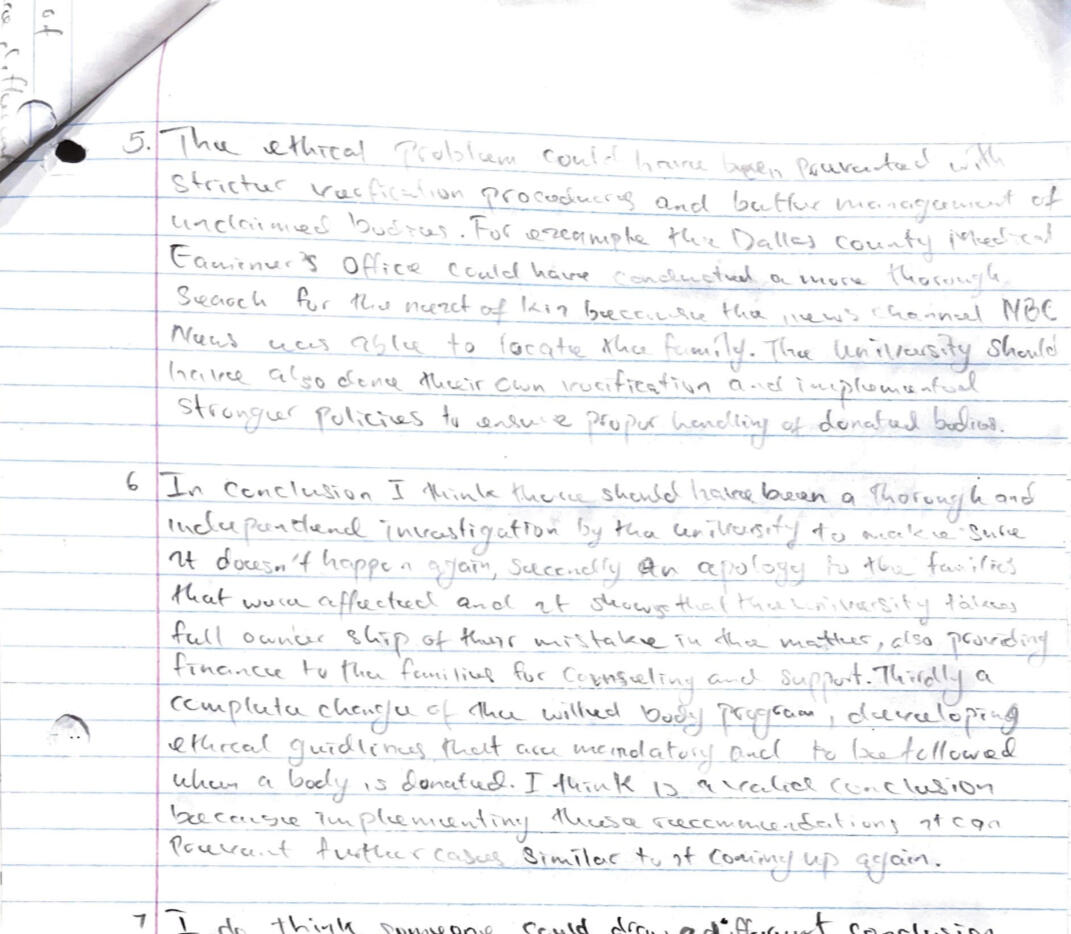 of
5. The ethical Problem could have been prevented with
stricter verfication procedures and better management of
unclaimed bodies. For example the Dallas County Medical
Examiner's Office could have conducted a more thorough
Search for the next of kin because the news channel NBC
News was able to locate the family. The University should
have also done their own verification and implemented
stronger policies to ensure proper handling of donated bodies.
6 In Conclusion I think there should have been a Thorough and
independend investigation by the university to make sure
it doesn't happen again, secondly an apology to the families
that were affected and it shows that the university takes
full owner ship of their mistake in the matter, also providing
finance to the families for counseling and support. Thirdly a
complete change of the willed body program, developing
ethical guidlines that are mandatory and to be followed
when a body is donated. I think is a valid conclusion
because implementing these recommendations it can
Prevent further cases similar to it coming up again.
7 I do think someone could draw a different conclusion